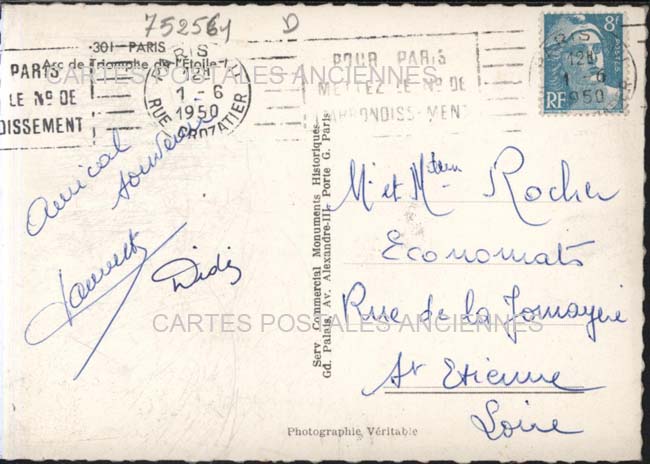 752564 D
301 - PARIS
Arc de Triomphe de l'Étoile
PARIS
LE Nº DE
DISSEMENT
PARIS
12H
1 - 6
1950
RUE CROZATIER
POUR PARIS
METTEZ LE Nº DE
ARRONDISSEMENT
8F
RF
PARIS
12H
1 - 6
1950
CARTES POSTALES ANCIENNES
Amical
souvenir
Didi
Serv. Commercial Monuments Historiques
Gd. Palais, Av. Alexandre-III, Porte G. Paris
Mr et Mme Rocher
Economats
Rue de la Jomayère
St Etienne
Loire
CARTES POSTALES ANCIENNES
Photographie Véritable